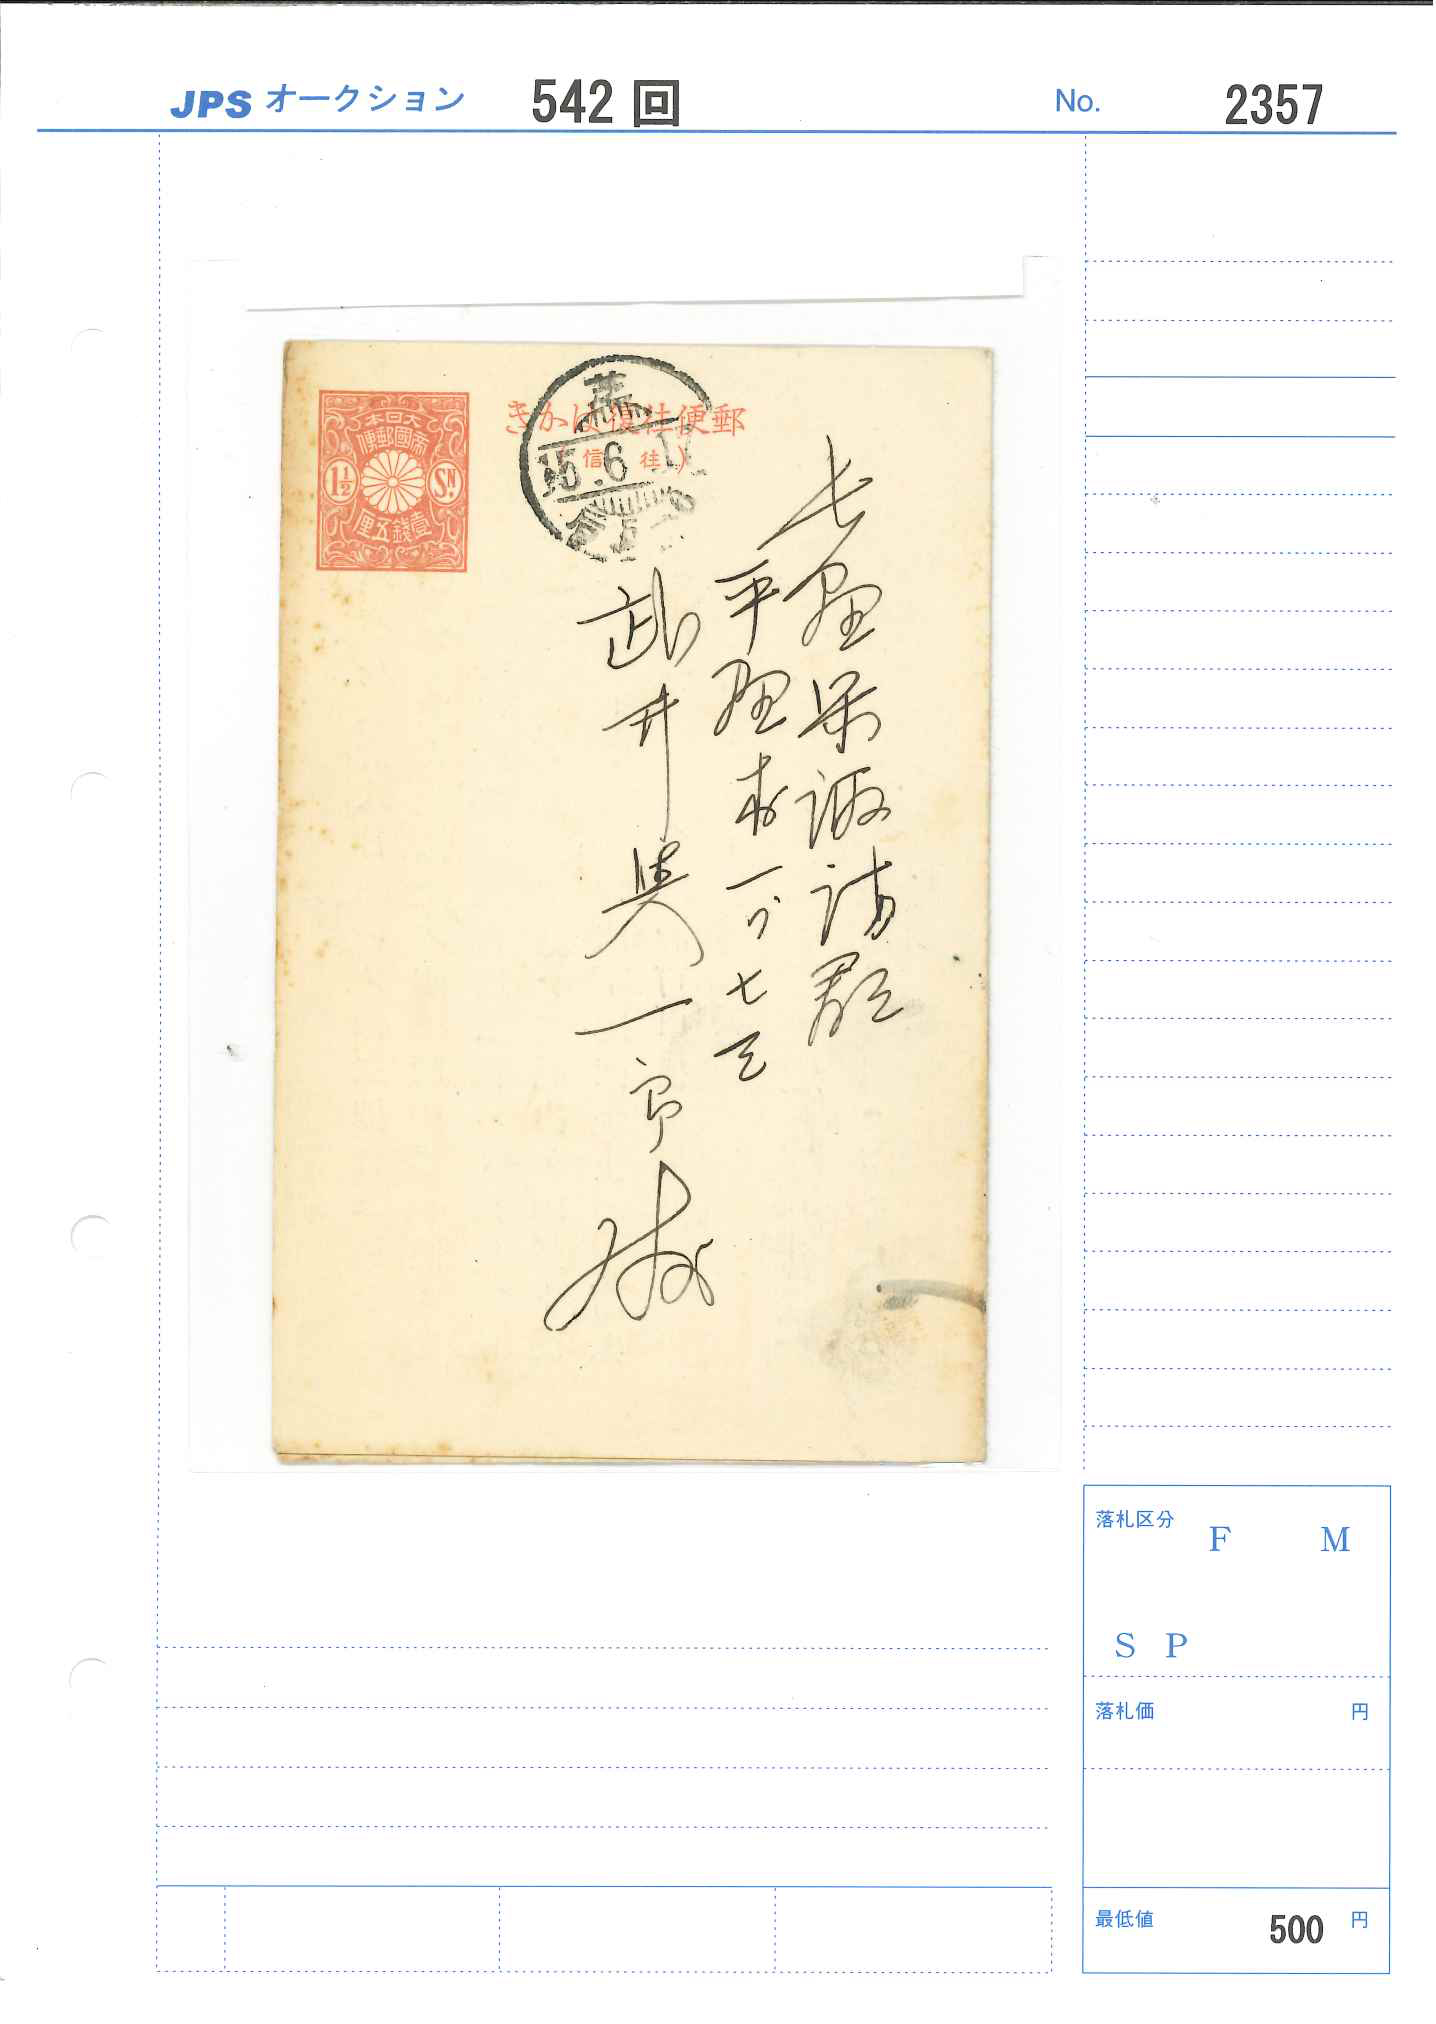 JPS オークション 542 回 No. 2357
郵便往復はかき
(往信)
大日本
帝國郵便
1½ SN.
壹錢五厘
15.6.17
長野県諏訪郡
平野村一ノ七三
武井
一
様
落札区分 F M
S P
落札価 円
最低値 500 円